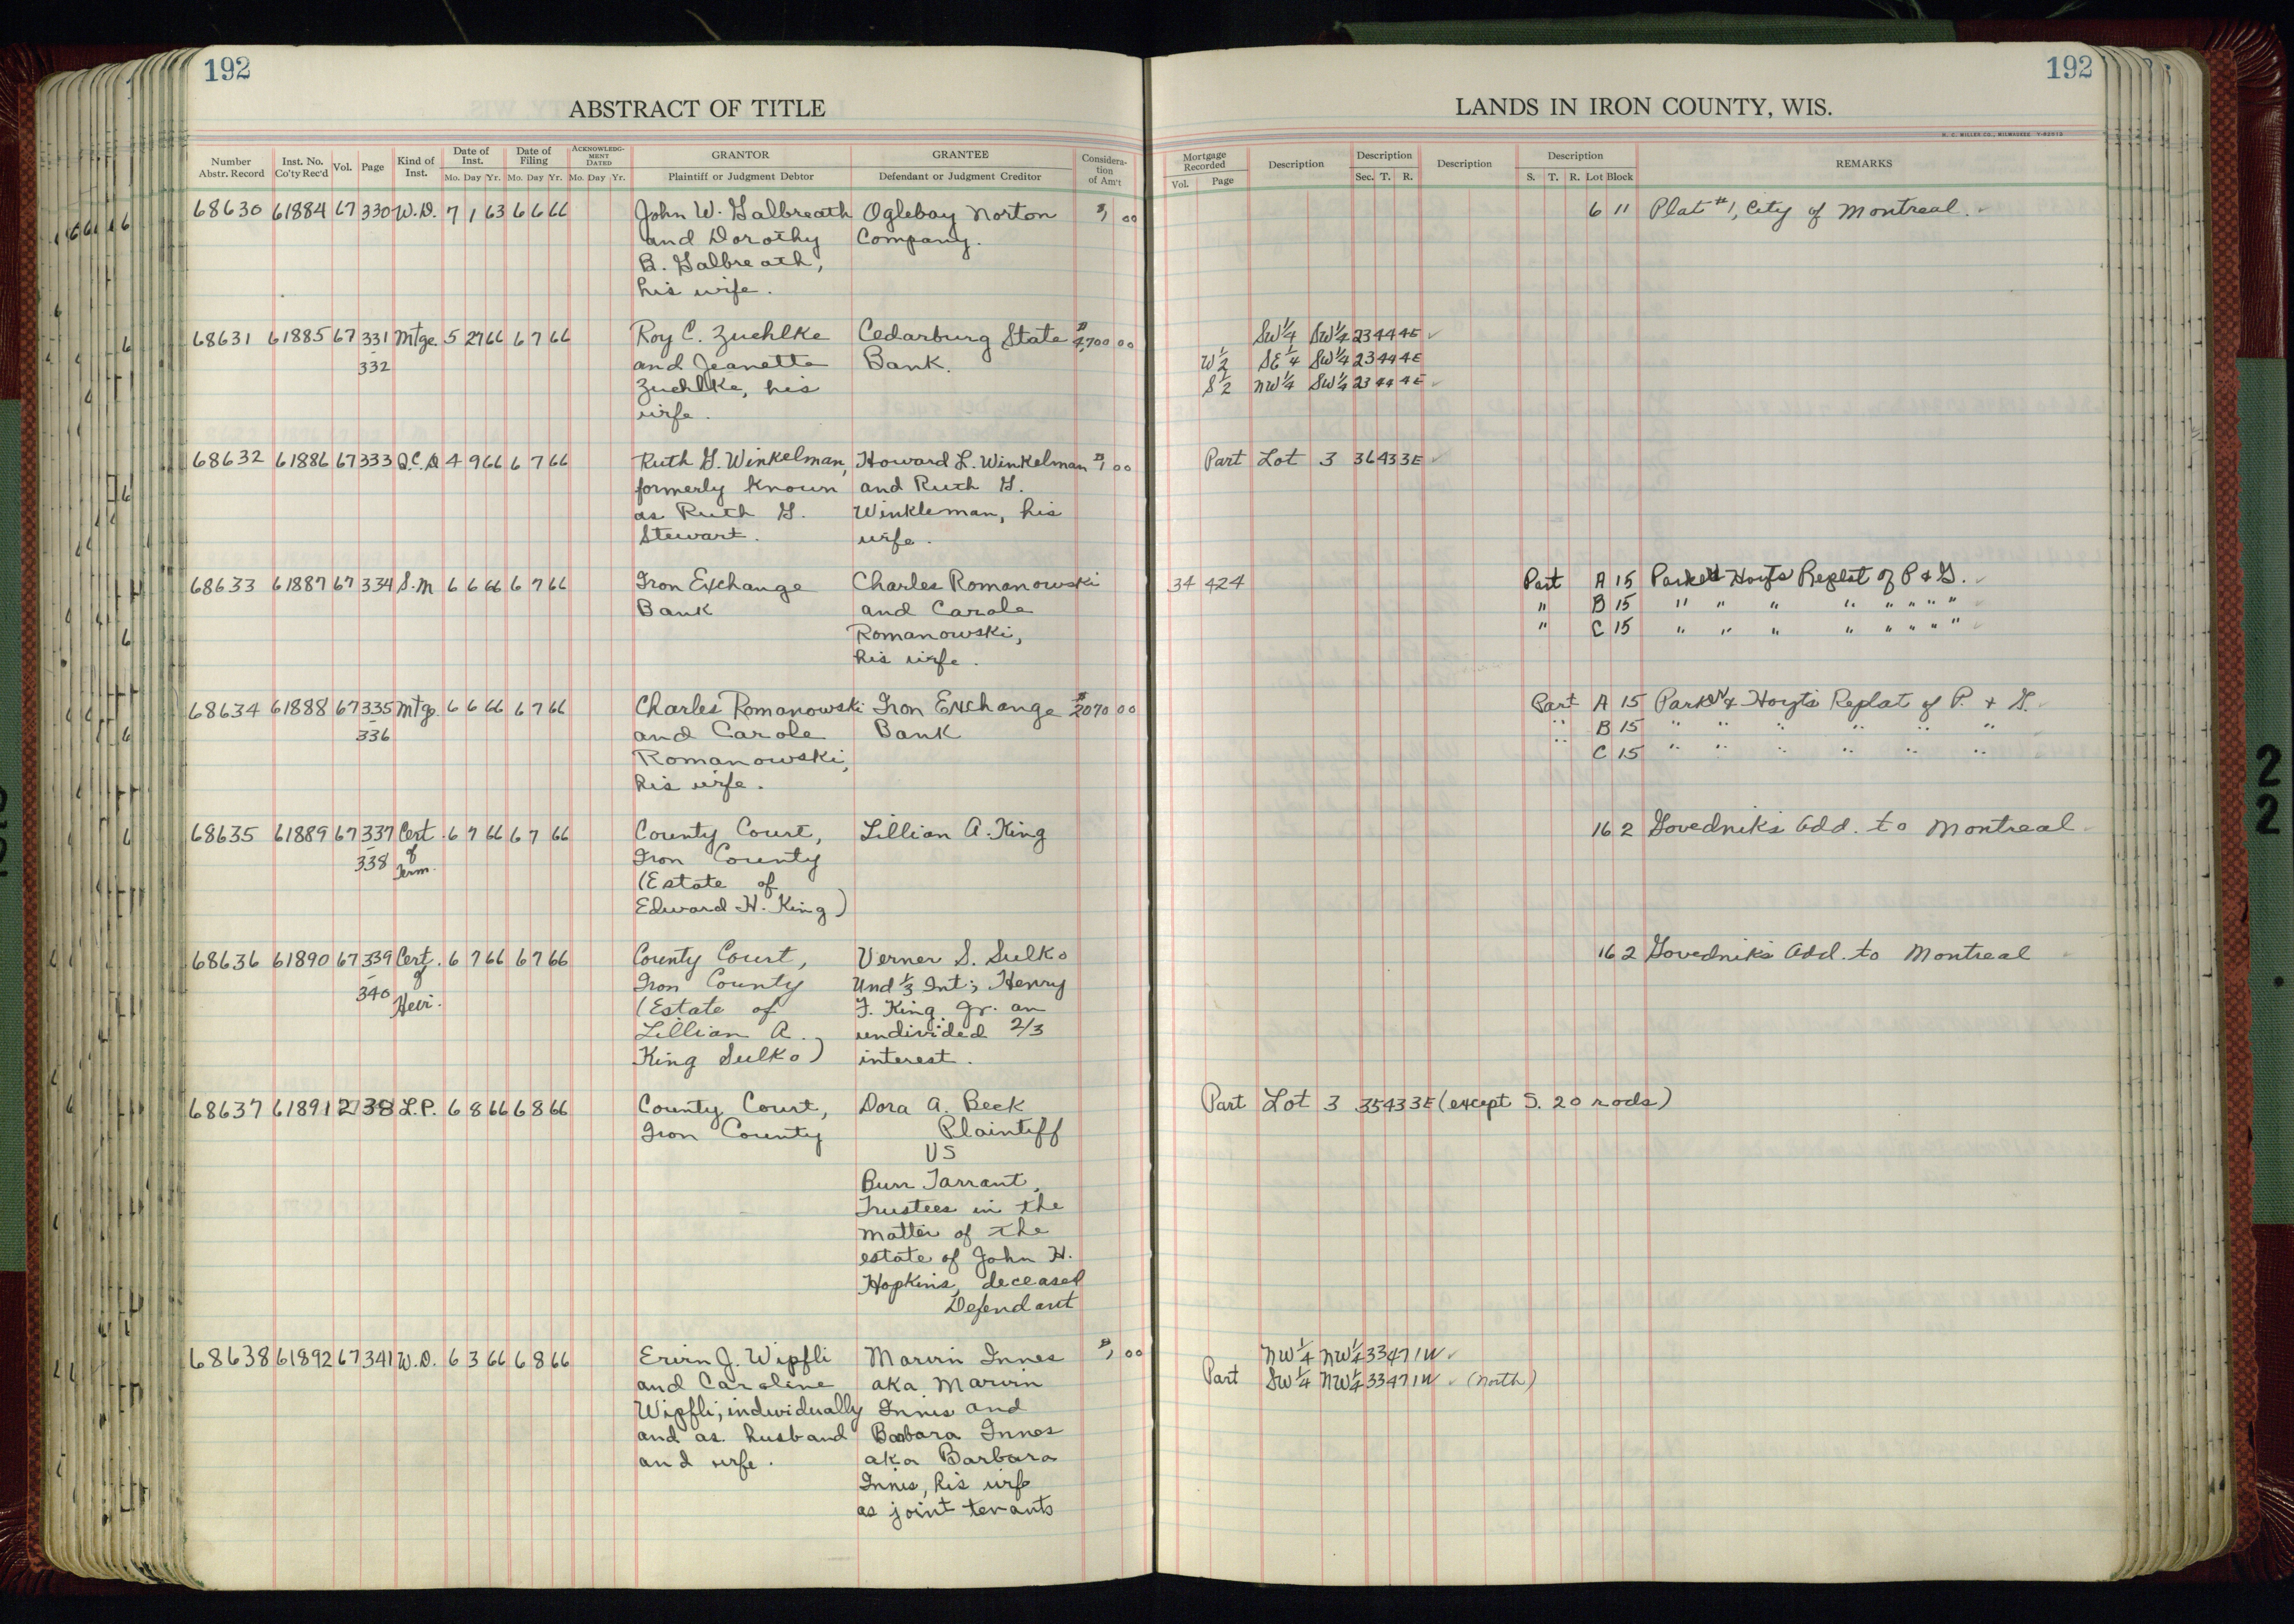 192
192
ABSTRACT OF TITLE
LANDS IN IRON COUNTY, WIS.
H. C. MILLER CO., MILWAUKEE
Number Abstr. Record Inst. No. Co'ty Rec'd Vol. Page Kind of Inst. Date of Inst. Mo. Day Yr. Date of Filing Mo. Day Yr. ACKNOWLEDGMENT DATED Mo. Day Yr. GRANTOR Plaintiff or Judgment Debtor GRANTEE Defendant or Judgment Creditor Consideration of Am't
Mortgage Recorded Vol. Page Description Description Sec. T. R. Description Description S. T. R. Lot Block REMARKS
68630 61884 67 330 W.D. 7 1 63 6 6 66 John W. Galbreath Oglebay Norton $1 00 6 11 Plat #1, City of Montreal.
and Dorothy Company.
B. Galbreath,
his wife.
68631 61885 67 331 Mtge. 5 27 66 6 7 66 Roy C. Zuehlke Cedarburg State $4,700 00 SW¼ SW¼ 23 44 4E
332 and Jeanette Bank. W½ SE¼ SW¼ 23 44 4E
Zuehlke, his S½ NW¼ SW¼ 23 44 4E
wife.
68632 61886 67 333 Q.C.D 4 9 66 6 7 66 Ruth G. Winkelman, Howard L. Winkelman $1 00 Part Lot 3 36 43 3E
formerly known and Ruth G.
as Ruth G. Winkleman, his
Stewart. wife.
68633 61887 67 334 S.M 6 6 66 6 7 66 Iron Exchange Charles Romanowski 34 424 Part A 15 Hoyts Replat of P & G.
Bank and Carole " B 15 " " " " " " " "
Romanowski, " C 15 " " " " " " " "
his wife.
68634 61888 67 335 Mtge. 6 6 66 6 7 66 Charles Romanowski Iron Exchange $2070 00 Part A 15 & Hoyt's Replat of P. & G.
336 and Carole Bank " B 15 " " " " " "
Romanowski, " C 15 " " " " " "
his wife.
68635 61889 67 337 Cert. 6 7 66 6 7 66 County Court, Lillian A. King 16 2 Govednik's Add. to Montreal
338 of Term. Iron County
(Estate of
Edward H. King)
68636 61890 67 339 Cert. 6 7 66 6 7 66 County Court, Verner S. Sulko 16 2 Govednik's Add. to Montreal
340 of Heir. Iron County Und ⅓ Int; Henry
(Estate of F. King Jr. an
Lillian A. undivided 2/3
King Sulko) interest.
68637 61891 2 38 L.P. 6 8 66 6 8 66 County Court, Dora A. Beck Part Lot 3 35 43 3E (except S. 20 rods)
Iron County Plaintiff
VS
Burr Tarrant,
Trustees in the
matter of the
estate of John H.
Hopkins, deceased
Defendant
68638 61892 67 341 W.D. 6 3 66 6 8 66 Ervin J. Wipfli Marvin Innes $1 00 NW¼ NW¼ 33 47 1W
and Caroline aka Marvin Part SW¼ NW¼ 33 47 1W (North)
Wipfli, individually Innis and
and as husband Barbara Innes
and wife. aka Barbara
Innis, his wife
as joint tenants